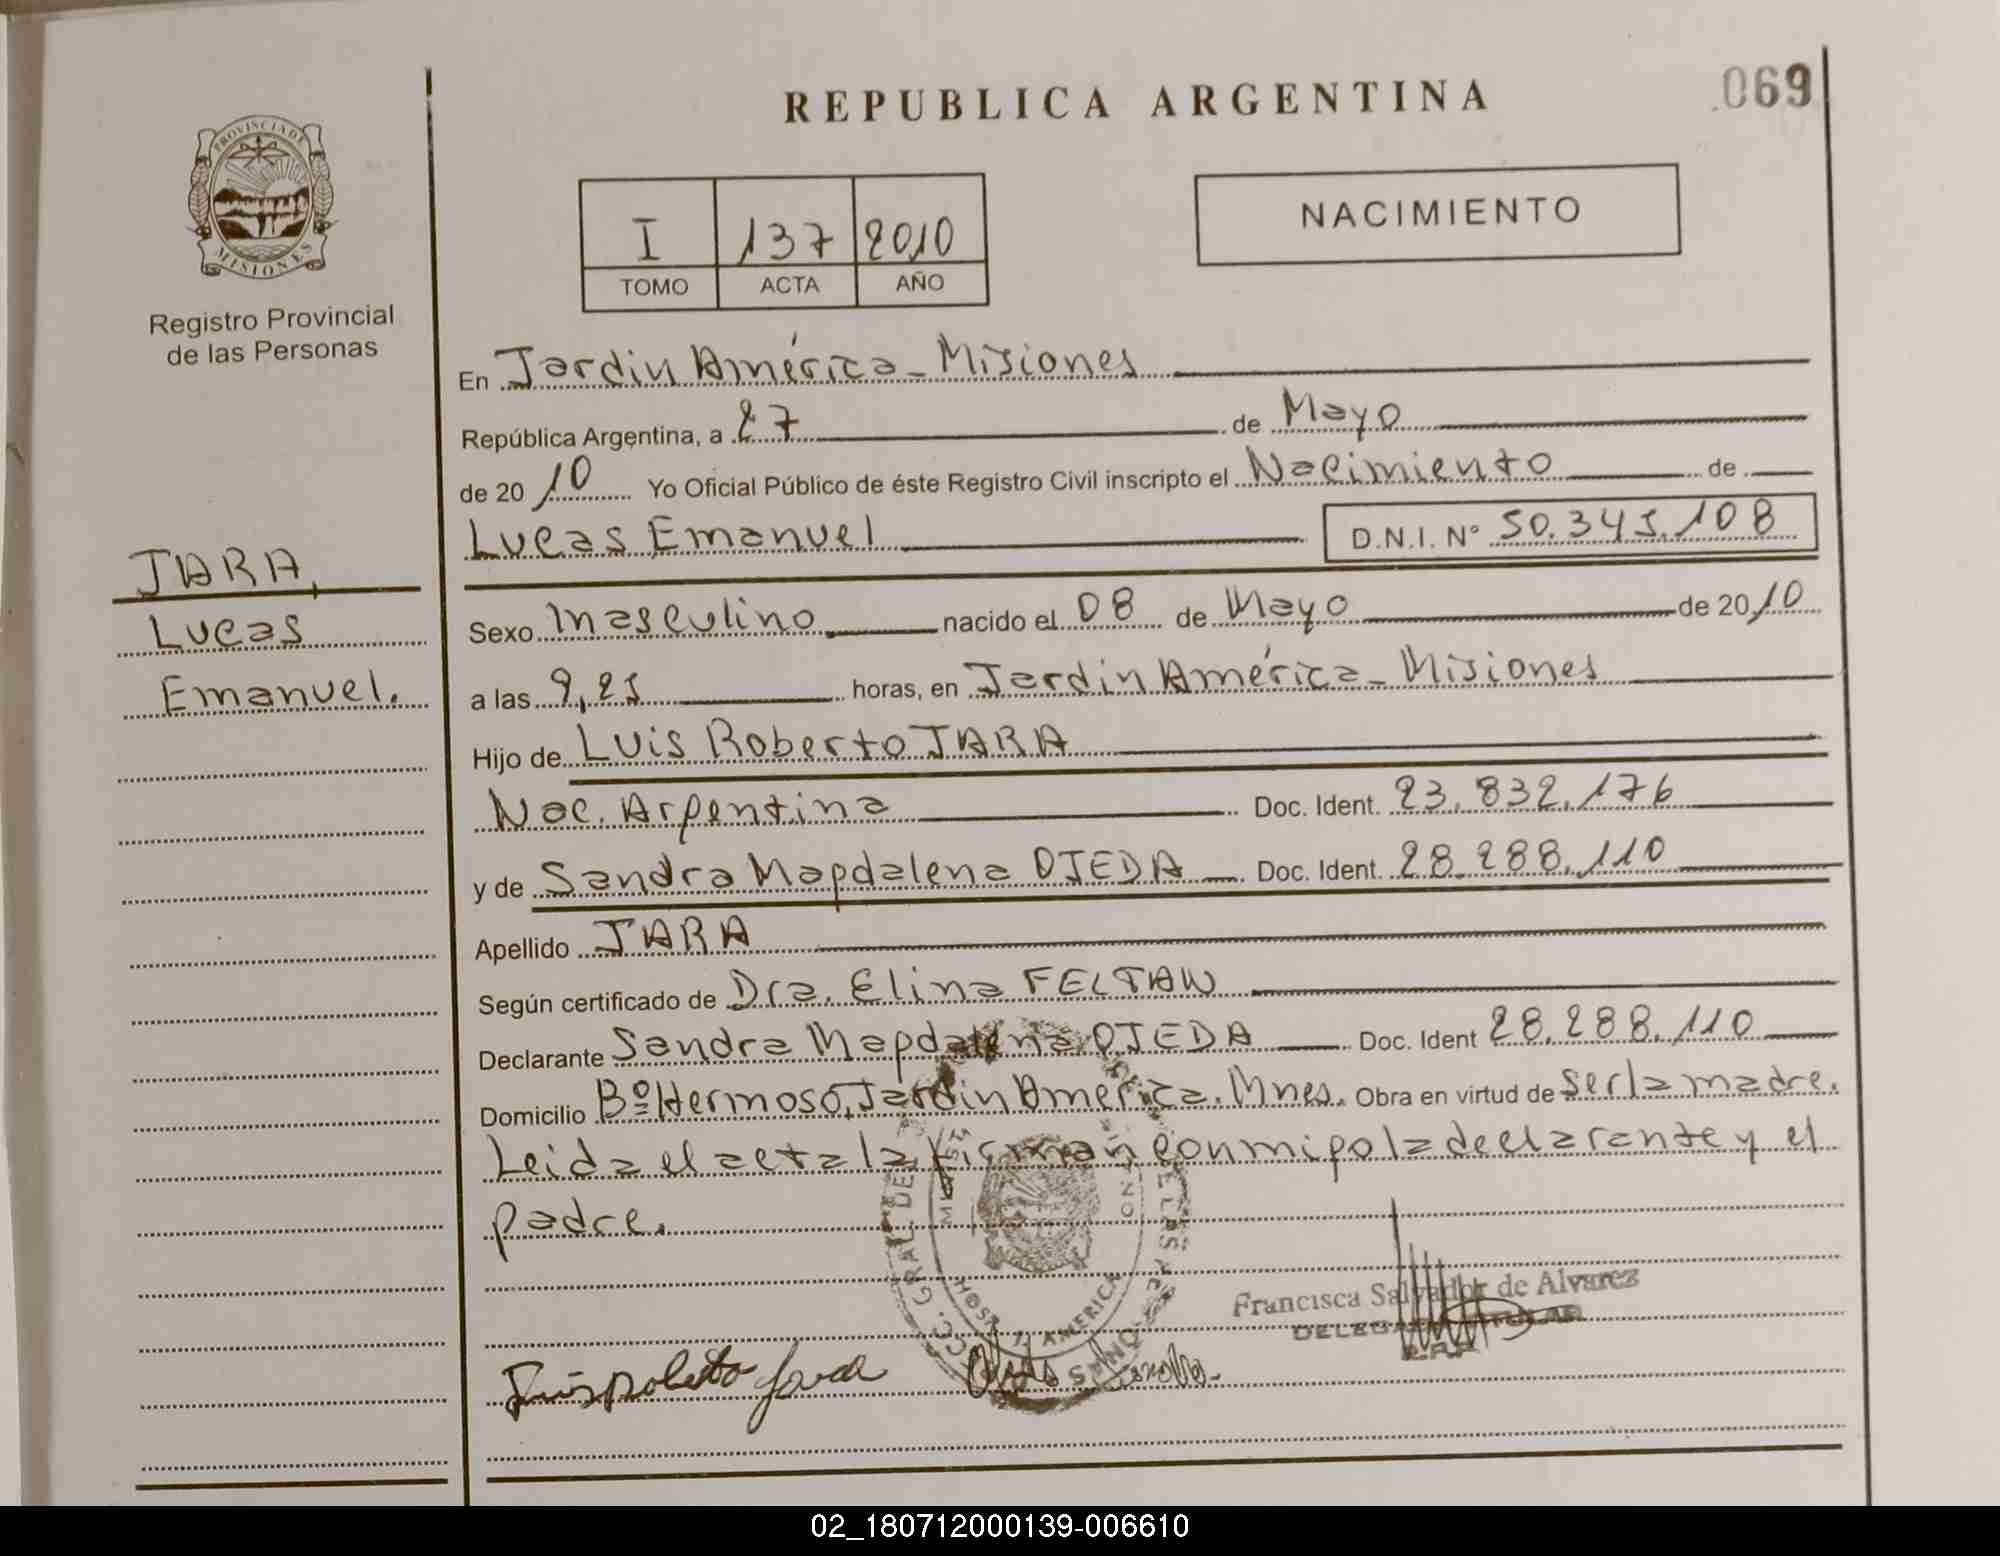 REPUBLICA ARGENTINA
069
PROVINCIA DE
MISIONES
Registro Provincial
de las Personas
I 137 2010
TOMO ACTA AÑO
NACIMIENTO
En Jardin América - Misiones
República Argentina, a 27 de Mayo
de 2010 Yo Oficial Público de éste Registro Civil inscripto el Nacimiento de
Lucas Emanuel D.N.I. Nº 50.345.108
JARA,
Lucas
Emanuel.
Sexo masculino nacido el 08 de Mayo de 2010
a las 9,25 horas, en Jardin América - Misiones
Hijo de Luis Roberto JARA
Nac. Argentina Doc. Ident. 23.832.176
y de Sandra Magdalena OJEDA Doc. Ident. 28.288.110
Apellido JARA
Según certificado de Dra. Elina FELTAN
Declarante Sandra Magdalena OJEDA Doc. Ident 28.288.110
Domicilio Bº Hermoso, Jardin America. Mnes. Obra en virtud de ser la madre.
Leida el acta la firman conmigo la declarante y el
padre.
Francisca Salvador de Alvarez
02_180712000139-006610